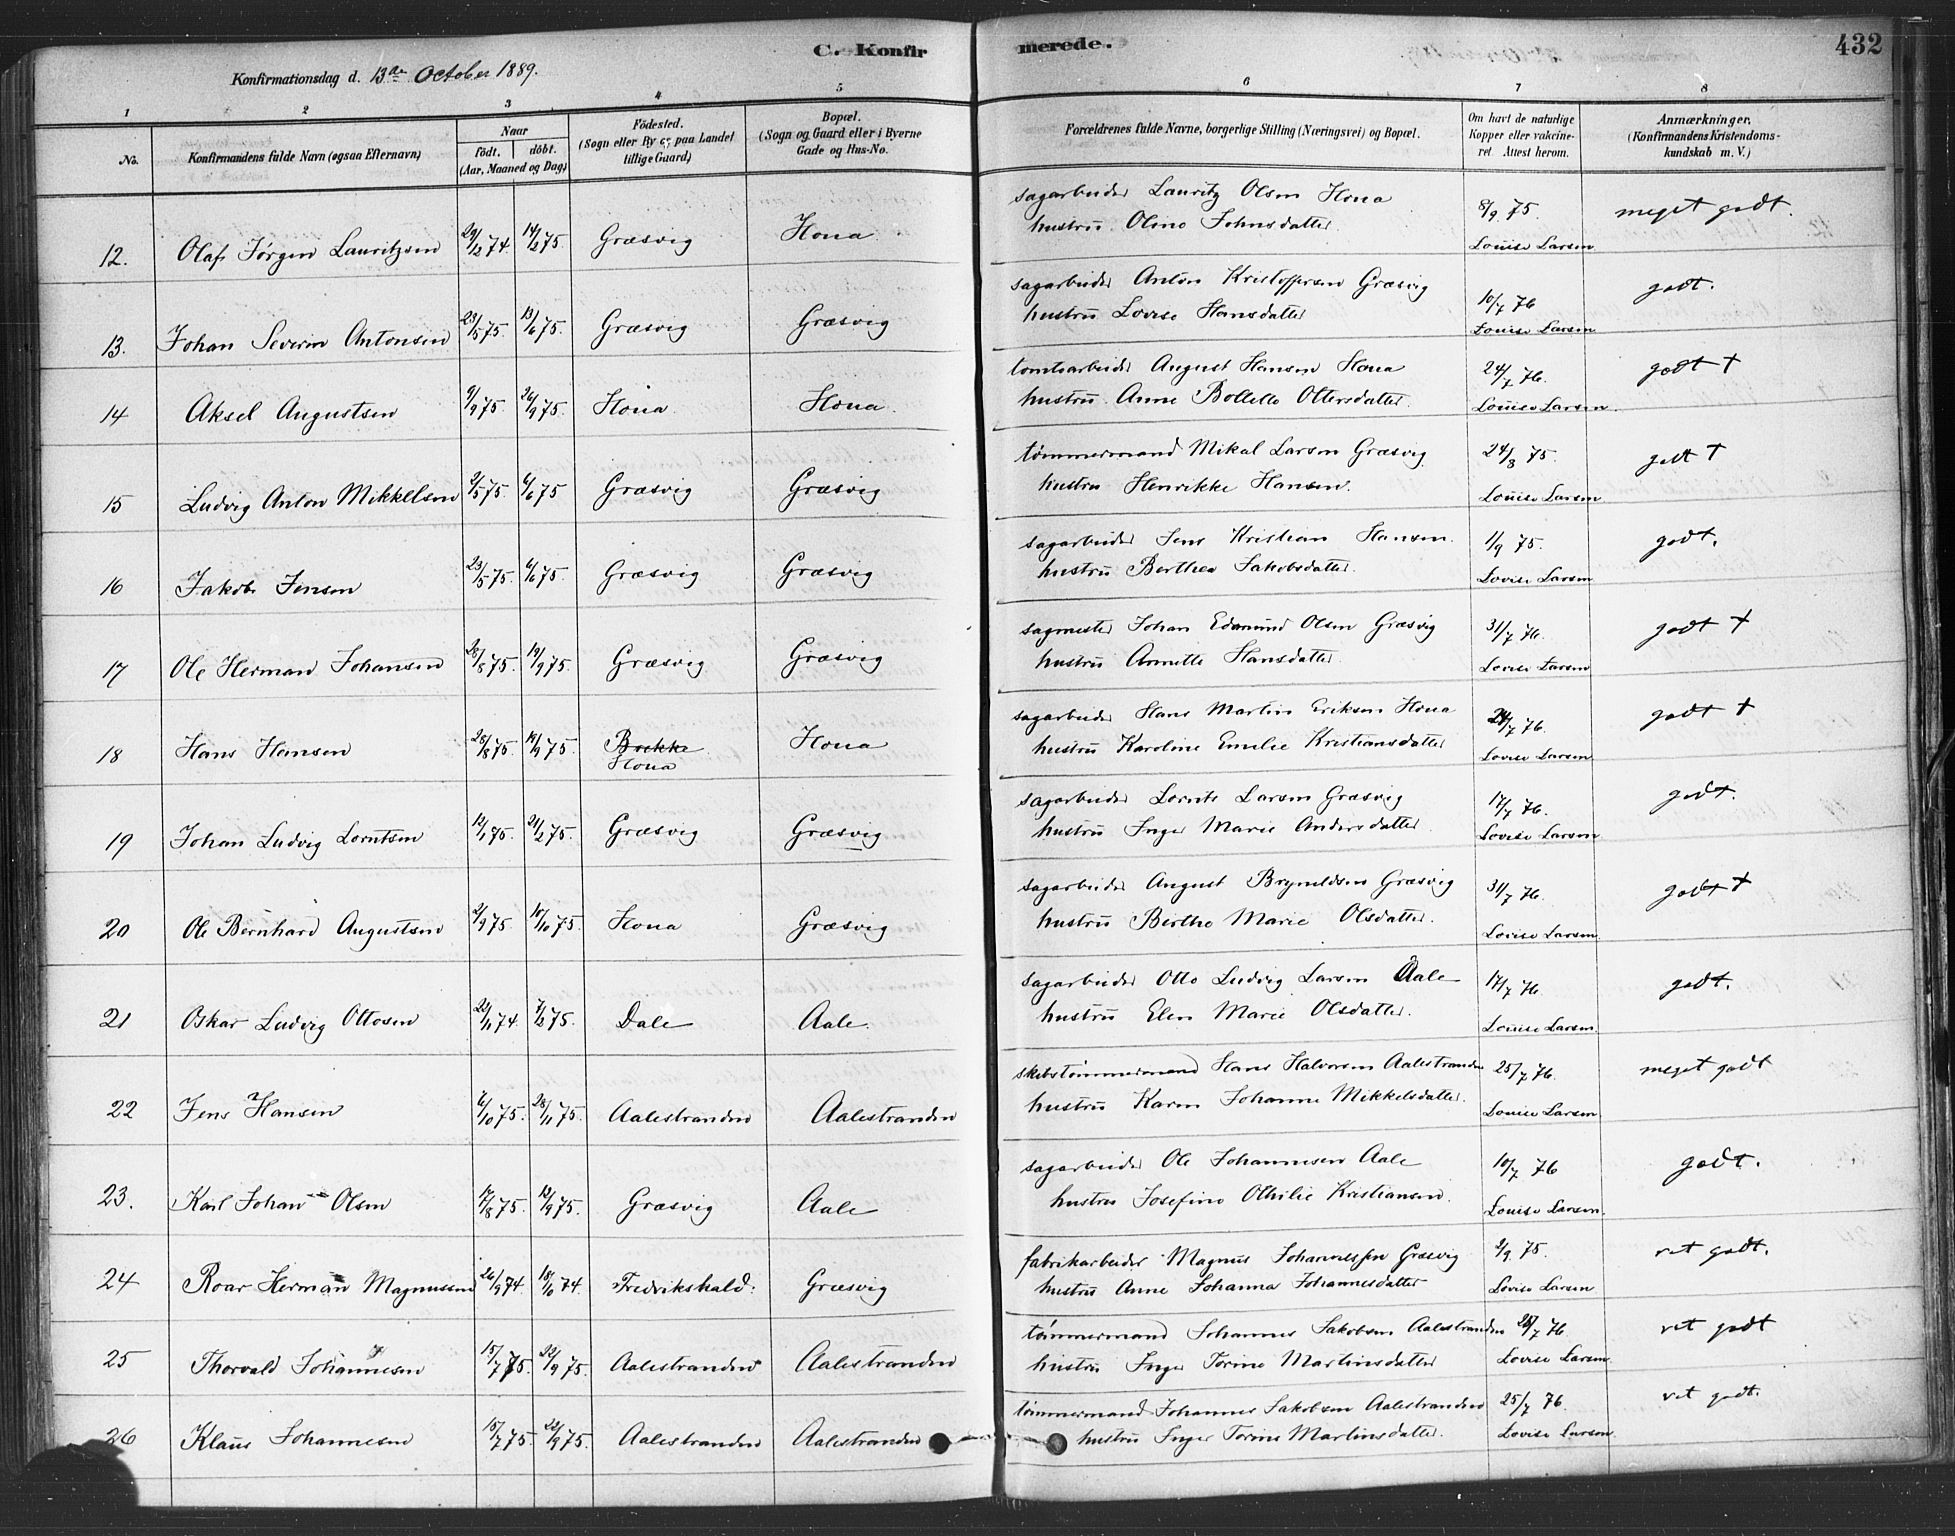 C. Konfirmerede. 432
Konfirmationsdag d. 13de October 1889.
1 2 3 4 5 6 7 8
No. Konfirmandens fulde Navn (ogsaa Efternavn) Naar født. døbt. (Aar, Maaned og Dag) Fødested. (Sogn eller By og paa Landet tillige Gaard) Bopæl. (Sogn og Gaard eller i Byerne Gade og Hus-No. Forældrenes fulde Navne, borgerlige Stilling (Næringsvei) og Bopæl. Om havt de naturlige Kopper eller vakcineret. Attest herom. Anmærkninger. (Konfirmandens Kristendomskundskab m. V.)
12. Olaf Jørgen Lauritzsen 29/12 74. 14/2 75. Græsvig Hona sagarbeider Lauritz Olsen Hona 8/9 75. meget godt.
hustru Oline Johnsdatter Louise Larsen
13. Johan Severin Antonsen 23/5 75. 13/6 75. Græsvig Græsvig sagarbeider Anton Kristoffersen Græsvig 10/7 76 godt.
hustru Lovise Hansdatter Louise Larsen
14 Aksel Augustsen 9/9 75 26/9 75. Hona Hona tomtearbeider August Hansen Hona 24/7 76. godt +
hustru Anne Bollette Ottersdatter. Louise Larsen
15 Ludvig Anton Mikkelsen 2/5 75. 6/6 75 Græsvig Græsvig tømmermand Mikal Larsen Græsvig 24/8 75. godt +
hustru Henrikke Hansen. Louise Larsen
16 Jakob Jensen 23/5 75. 6/6 75. Græsvig Græsvig sagarbeider Jens Kristian Hansen. 1/9 75. godt.
hustru Berthea Jakobsdatter. Lovise Larsen
17 Ole Herman Johansen 28/8 75. 19/9 75. Græsvig Græsvig sagmester Johan Edmund Olsen Græsvig 31/7 76. godt +
hustru Annette Hansdatter. Lovise Larsen
18 Hans Hansen 28/8 75 19/9 75. Hona Hona sagarbeider Hans Martin Eriksen Hona 24/7 76. godt +
hustru Karoline Emilie Kristiansdatter Lovise Larsen
19 Johan Ludvig Lorntsen 12/1 75. 21/2 75. Græsvig Græsvig sagarbeider Lornts Larsen Græsvig 17/7 76. godt.
hustru Inger Marie Andersdatter. Lovise Larsen
20 Ole Bernhard Augustsen 2/9 75. 10/10 75. Hona Græsvig sagarbeider August Brynildsen Græsvig 31/7 76. godt +
hustru Berthe Marie Olsdatter. Lovise Larsen
21 Oskar Ludvig Ottosen 22/11 74. 7/2 75. Dale Aale. sagarbeider Otto Ludvig Larsen Aale 17/7 76. godt.
hustru Elen Marie Olsdatter. Louise Larsen
22 Jens Hansen 6/10 75. 28/11 75. Aalestranden Aalestranden skibstømmermand Hans Halvorsen Aalestranden 25/7 76. meget godt
hustru Karen Johanne Mikkelsdatter. Louise Larsen
23. Karl Johan Olsen 17/8 75. 19/9 75. Græsvig Aale sagarbeider Ole Johannesen Aale 10/7 76 godt.
hustru Josefine Othilie Kristiansen. Louise Larsen
24 Roar Herman Magnussen 26/9 74. 18/10 74. Fredrikshald. Græsvig fabrikarbeider Magnus Johannessen Græsvig 2/9 75. ret godt.
hustru Anne Johanna Johannesdatter Lovise Larsen
25 Thorvald Johannesen 15/7 75. 22/9 75. Aalestranden Aalestranden tømmermand Johannes Jakobsen Aalestranden 25/7 76. ret godt
hustru Inger Torine Martinsdatter Lovise Larsen
26 Klaus Johannesen 15/7 75. 22/9 75. Aalestranden Aalestranden tømmermand Johannes Jakobsen Aalestranden 25/7 76. ret godt.
hustru Inger Torine Martinsdatter. Lovise Larsen